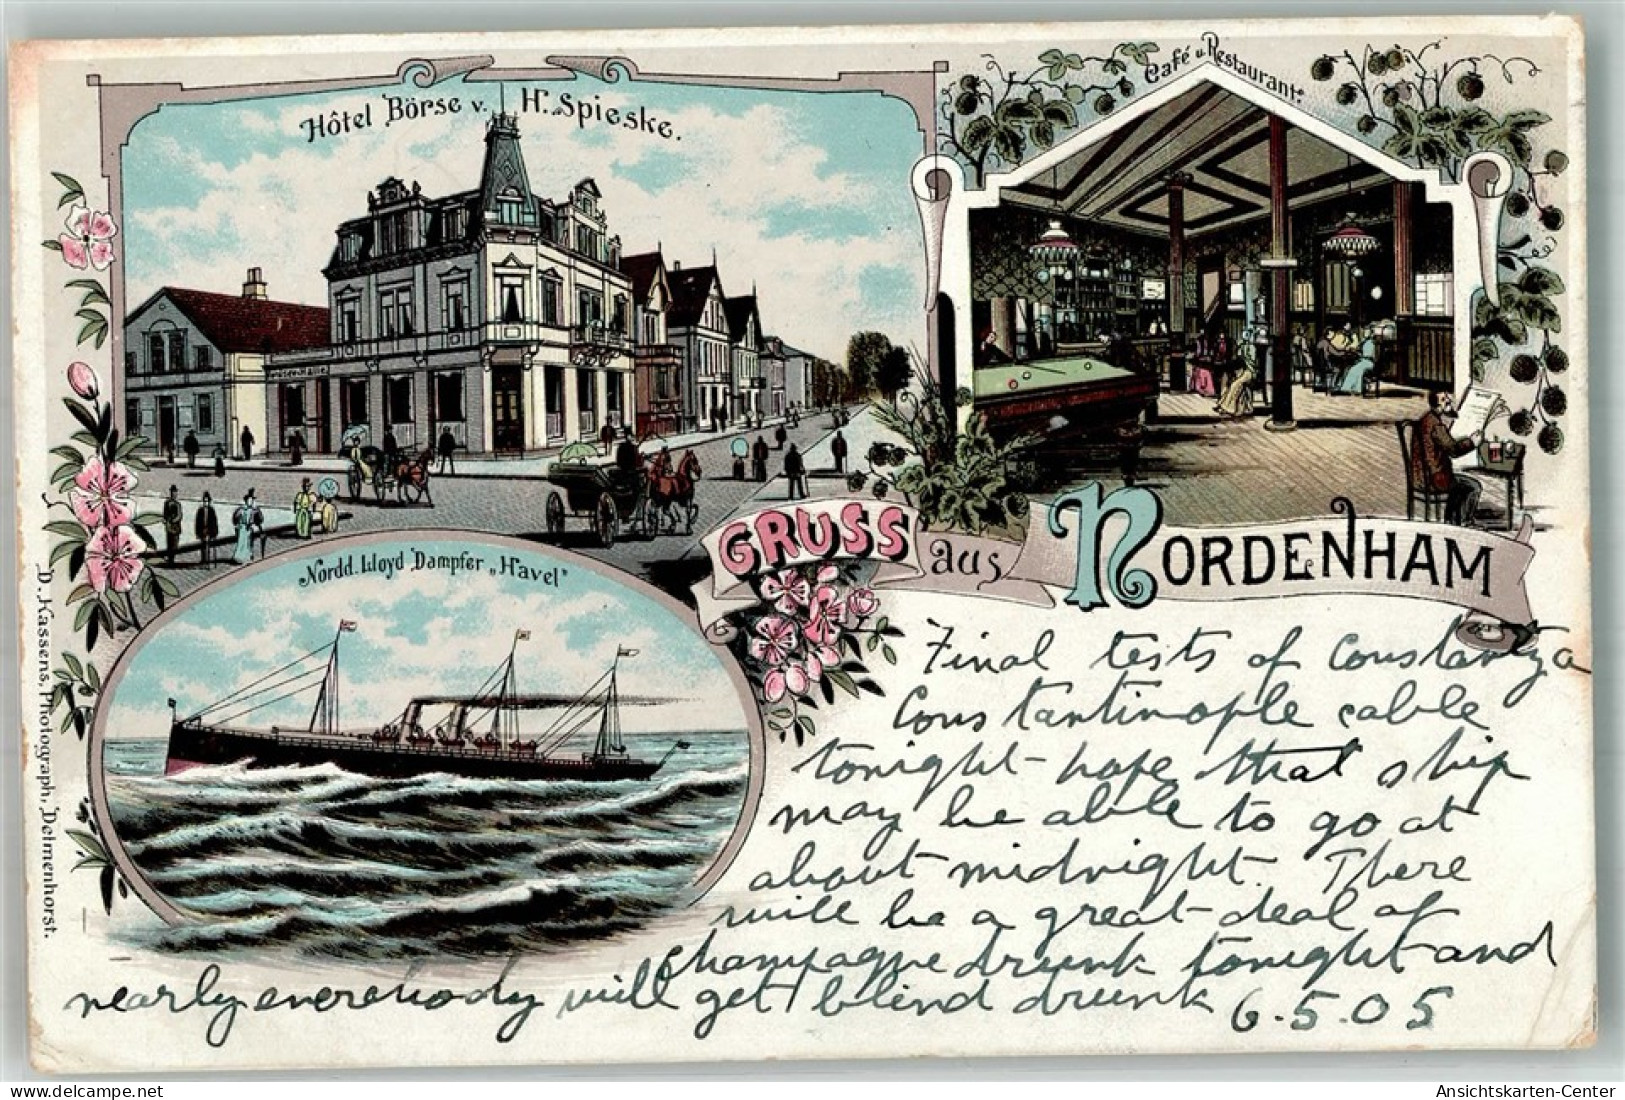 Hôtel Börse v. H. Spieske.
Café u. Restaurant.
Nordd. Lloyd Dampfer „Havel"
GRUSS aus NORDENHAM
D. Kassens, Photograph, Delmenhorst.
Final tests of Constantza
Constantinople cable
tonight - hope that ship
may be able to go at
about midnight. There
will be a great deal of
champagne drunk tonight and
nearly everebody will get blind drunk 6.5.05
Ansichtskarten-Center